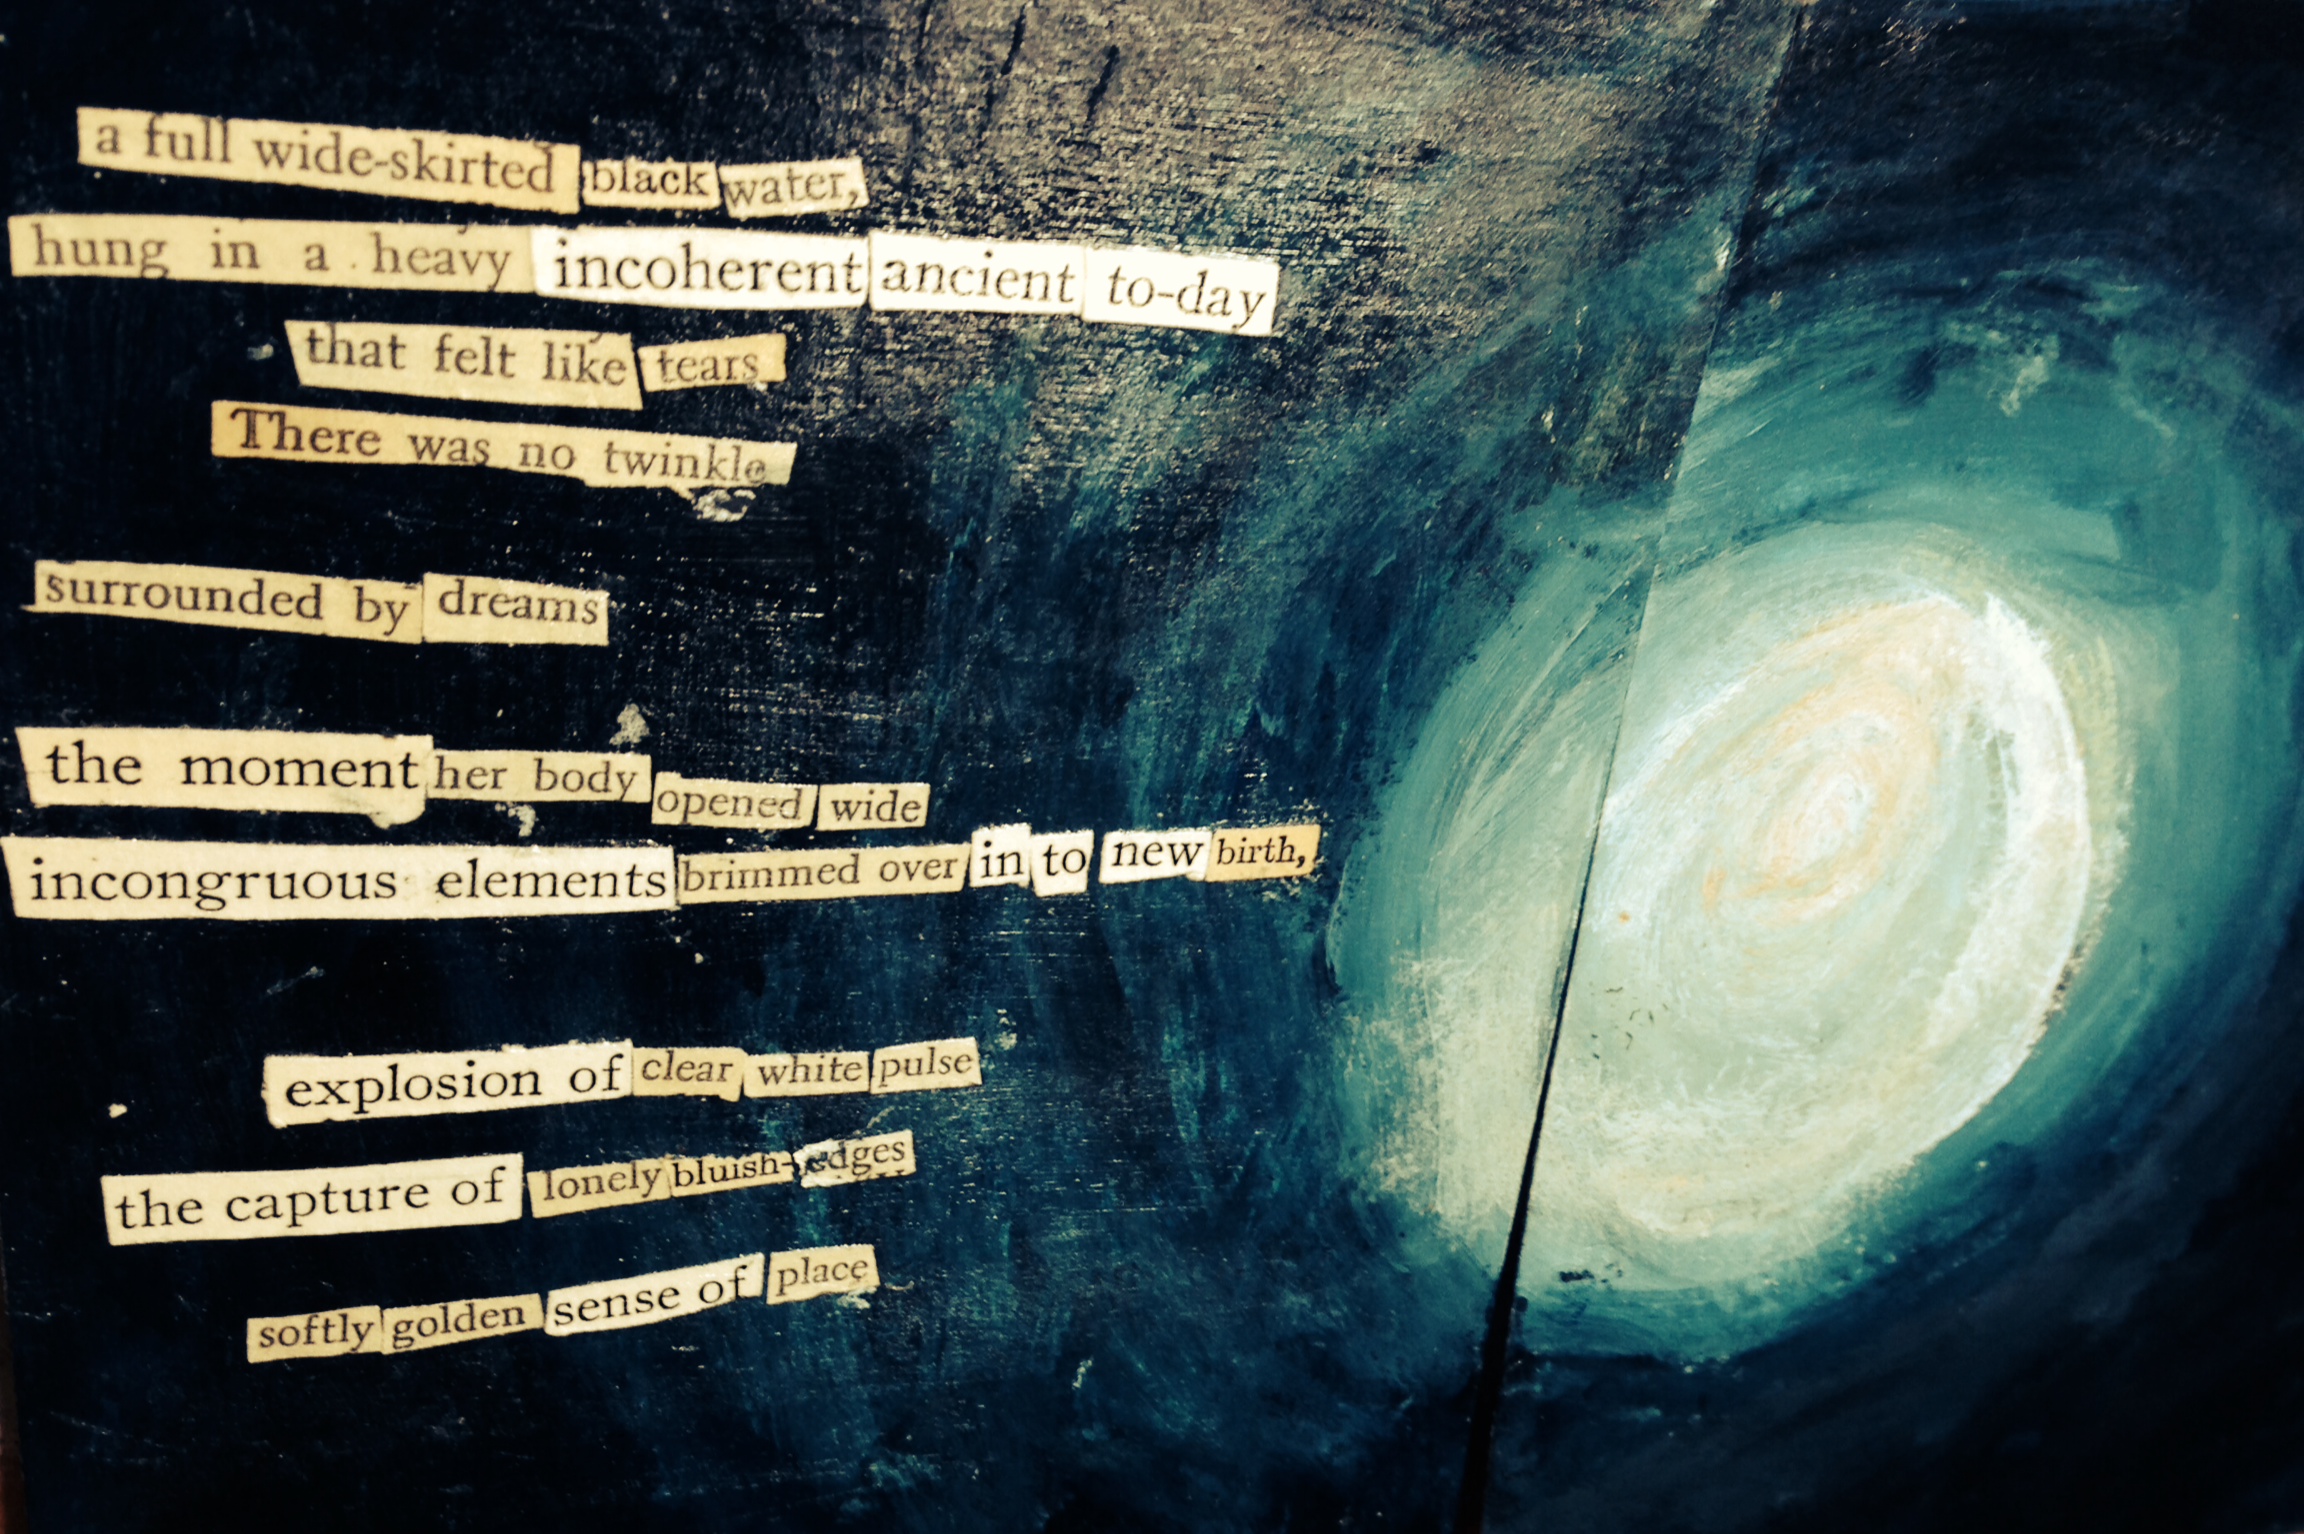 a full wide-skirted black water,
hung in a heavy incoherent ancient to-day
that felt like tears
There was no twinkle
surrounded by dreams
the moment her body opened wide
incongruous elements brimmed over in to new birth,
explosion of clear white pulse
the capture of lonely bluish-edges
softly golden sense of place